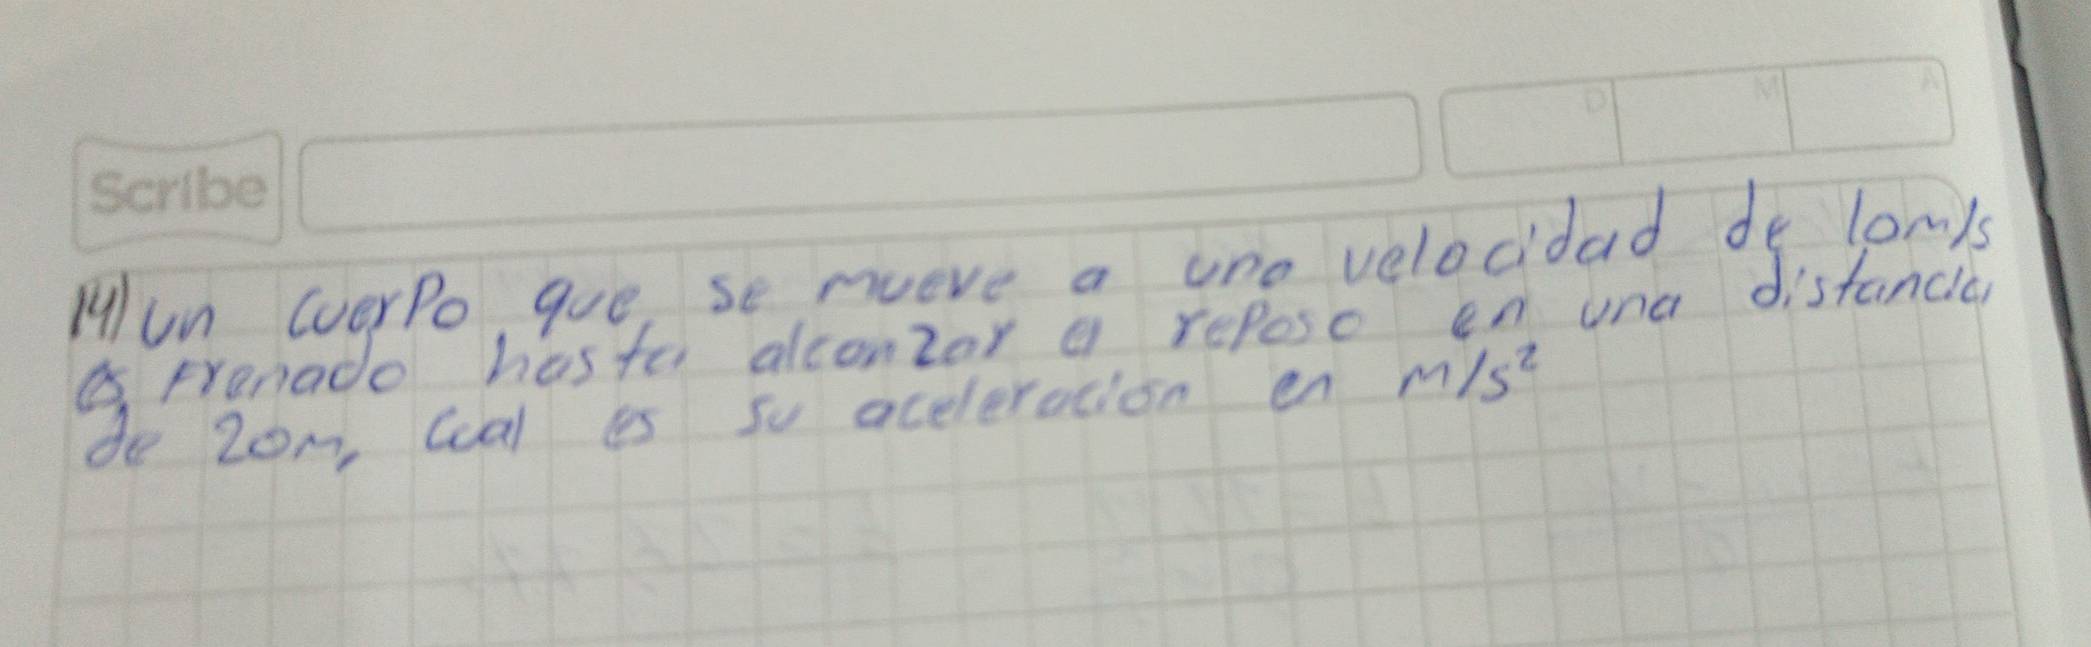 Scribe
D M A
14) un cuerpo que se mueve a una velocidad de 10m/s
es frenado hasta alcanzar el reposo en una distancia
de 20m, cual es su aceleración en m/s²